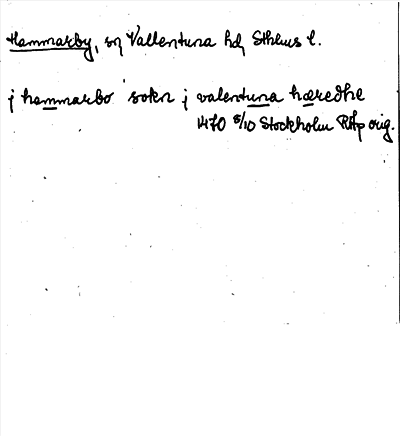 Hammarby, sn Vallentuna hd, Sthlms l.
j hammarbo sokn j valentuna hæredhe
1470 8/10 Stockholm RAp orig.